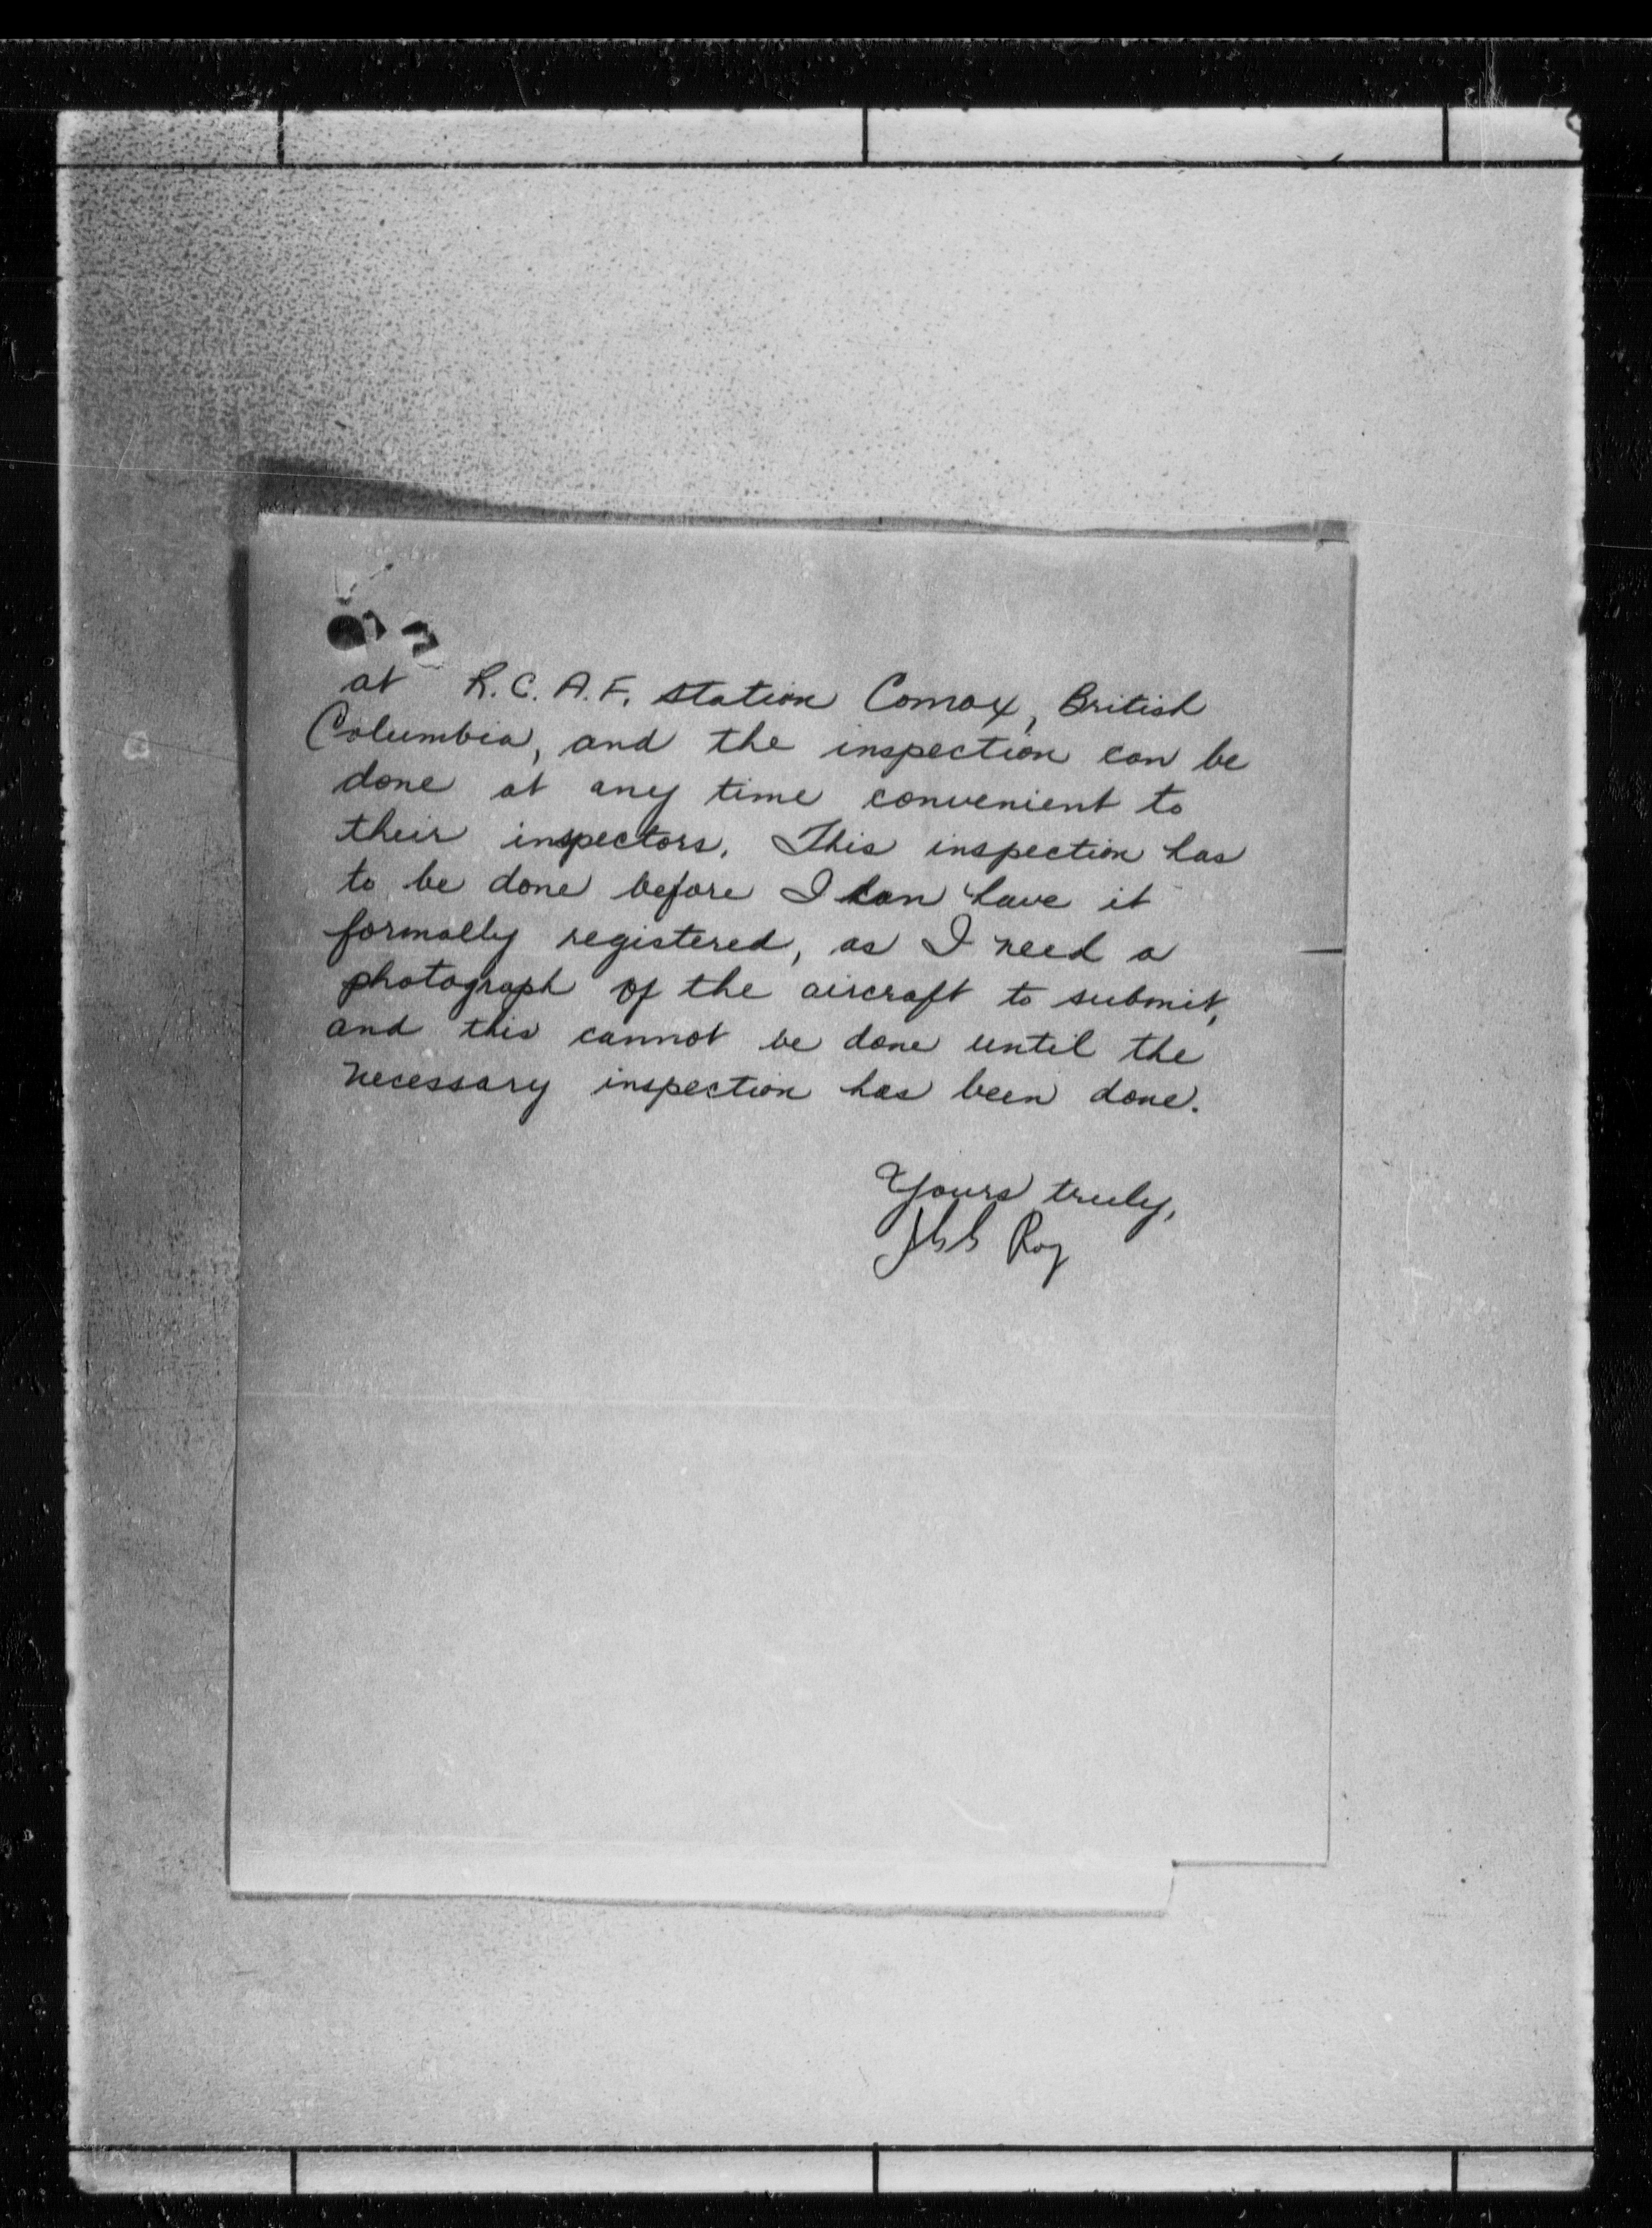 at R.C.A.F. station Comox, British
Columbia, and the inspection can be
done at any time convenient to
their inspectors. This inspection has
to be done before I can have it
formally registered, as I need a
photograph of the aircraft to submit,
and this cannot be done until the
necessary inspection has been done.
Yours truly,
Roy